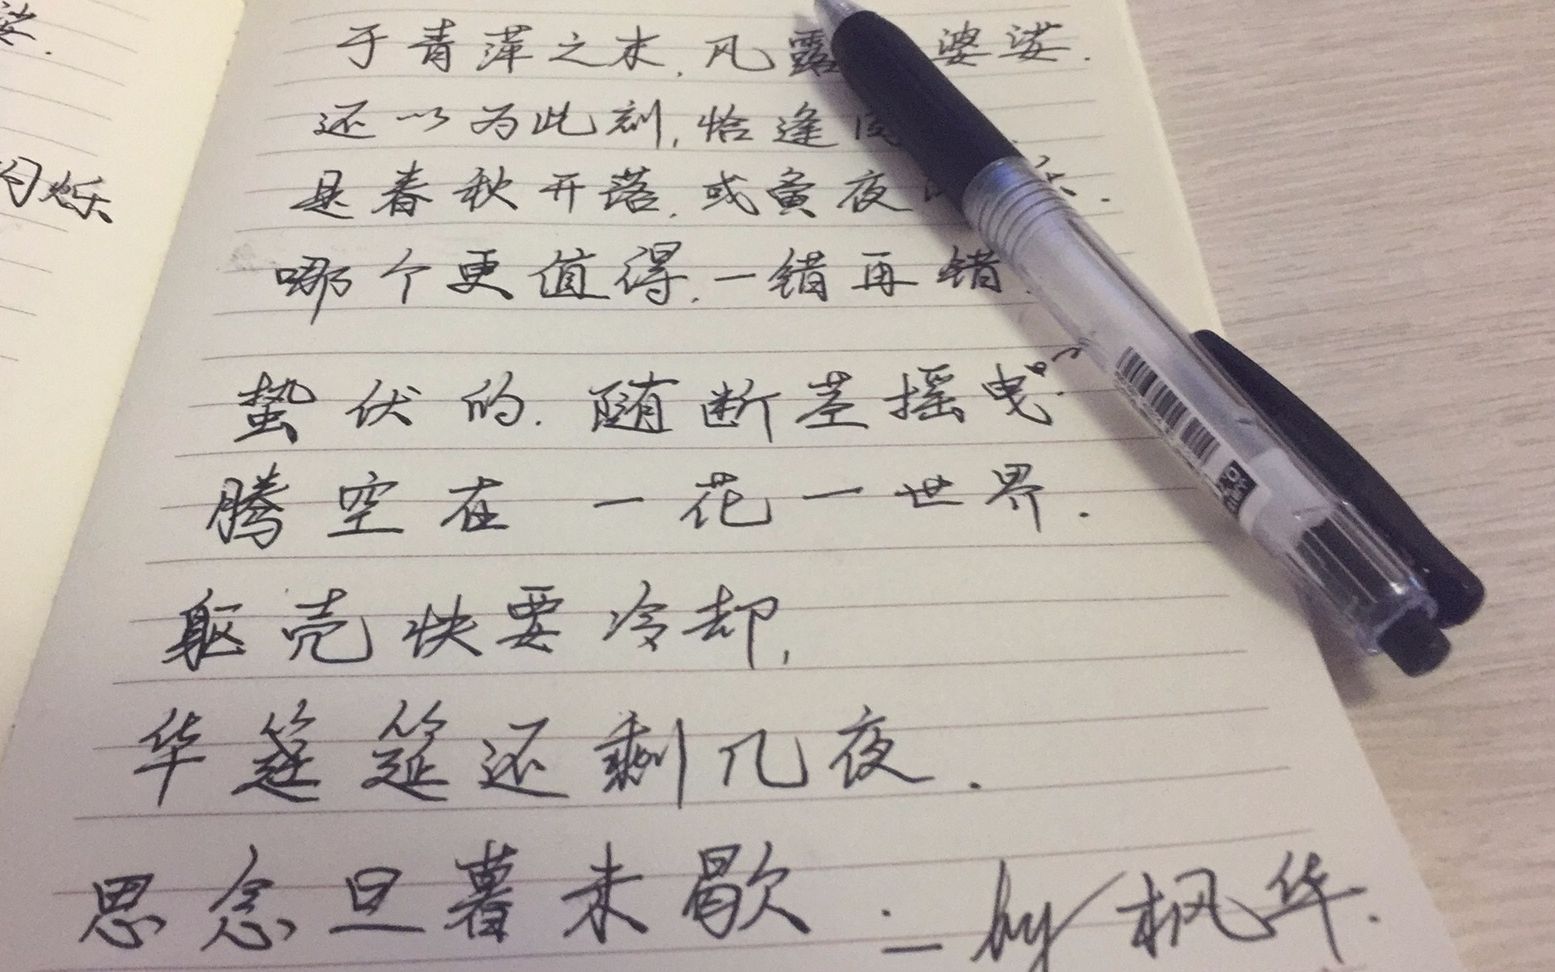 娑.
闪烁
于青萍之末,风露 婆娑.
还以为此刻,恰逢
是春秋开落,或蚕夜
哪个更值得,一错再错.
蛰伏的.随断茎摇曳.
腾空在一花一世界.
躯壳快要冷却,
华筵筵还剩几夜.
思念旦暮未歇.
—by枫华.